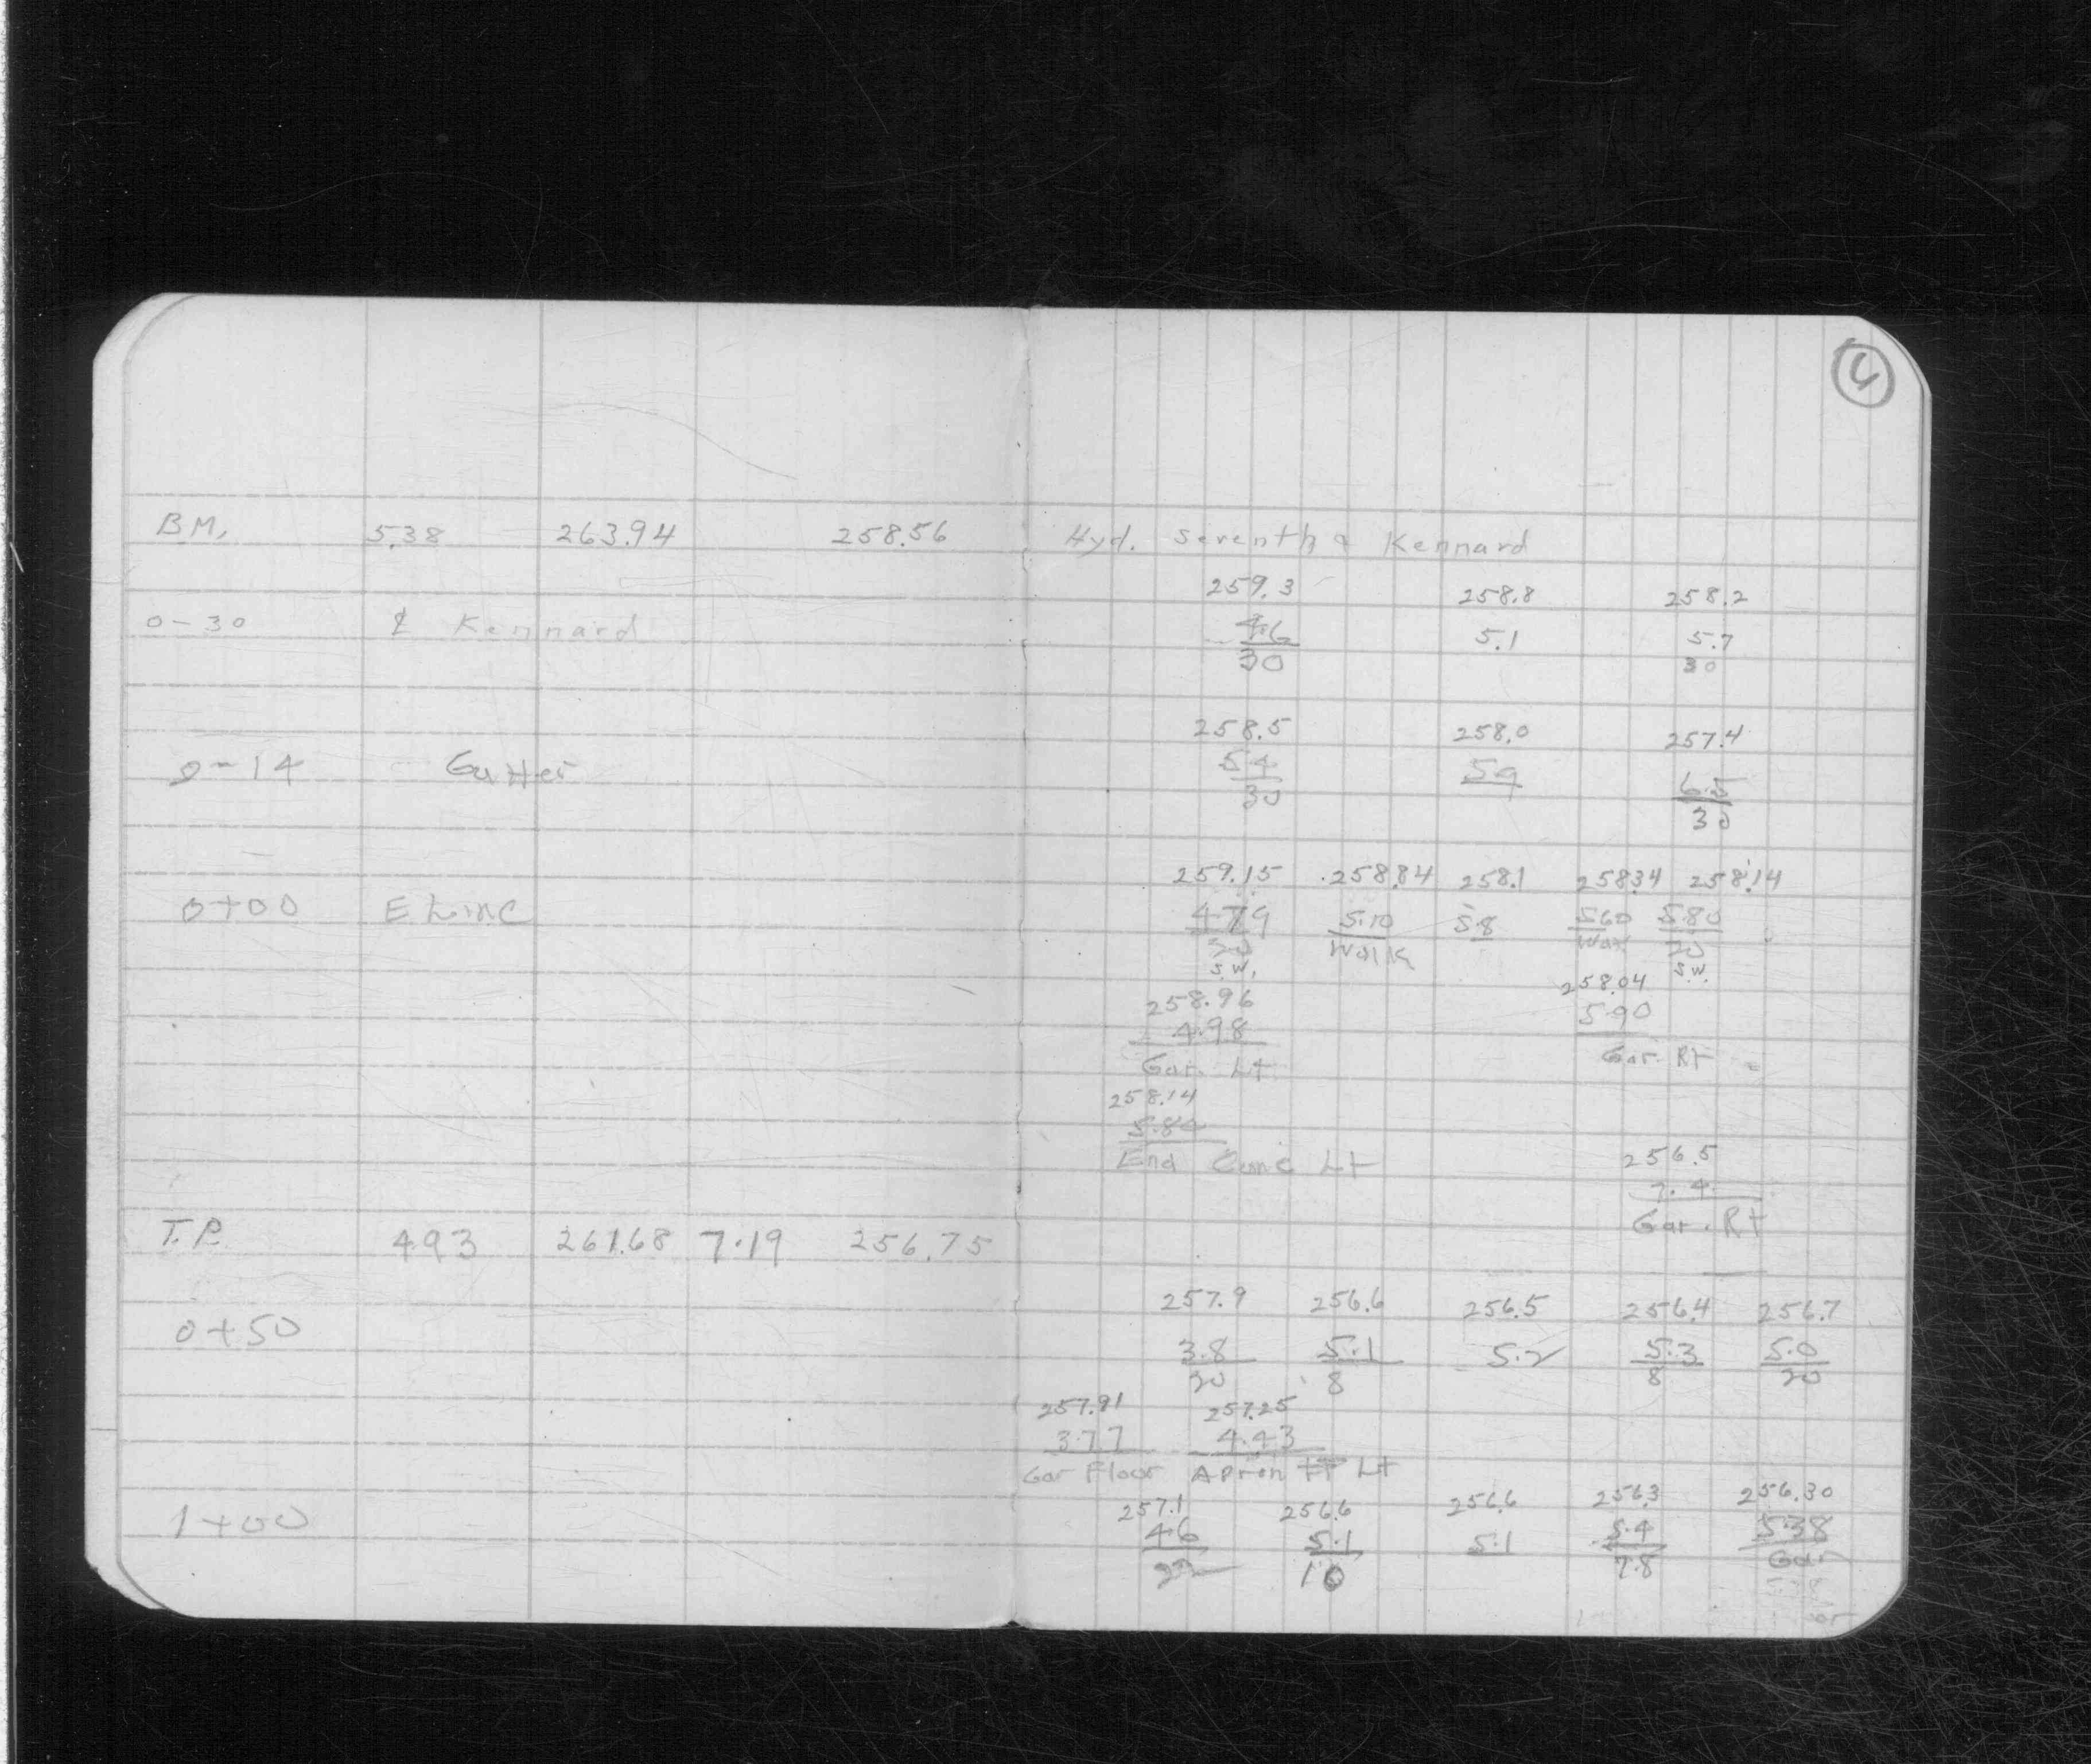 4
BM. 5.38 263.94 258.56 Hyd. Seventh & Kennard
259.3 258.8 258.2
0-30 ℄ Kennard 4.6 5.1 5.7
30 30
258.5 258.0 257.4
0-14 Gutter 5.4 5.9 6.5
30 30
259.15 258.84 258.1 258.34 258.14
0+00 E Line 4.79 5.10 5.8 5.60 5.80
20 Walk Walk 20
S.W. S.W.
258.96 258.04
4.98 5.90
Gar. Lt Gar. Rt
258.14
5.84
End Conc Lt 256.5
7.4
Gar. Rt
T.P. 4.93 261.68 7.19 256.75
257.9 256.6 256.5 256.4 256.7
0+50 3.8 5.1 5.2 5.3 5.0
20 8 8 20
257.91 257.25
3.77 4.43
Gar Floor Apron Lt
257.1 256.6 256.6 256.3 256.30
1+00 4.6 5.1 5.1 5.4 5.38
22 10 7.8 Gar